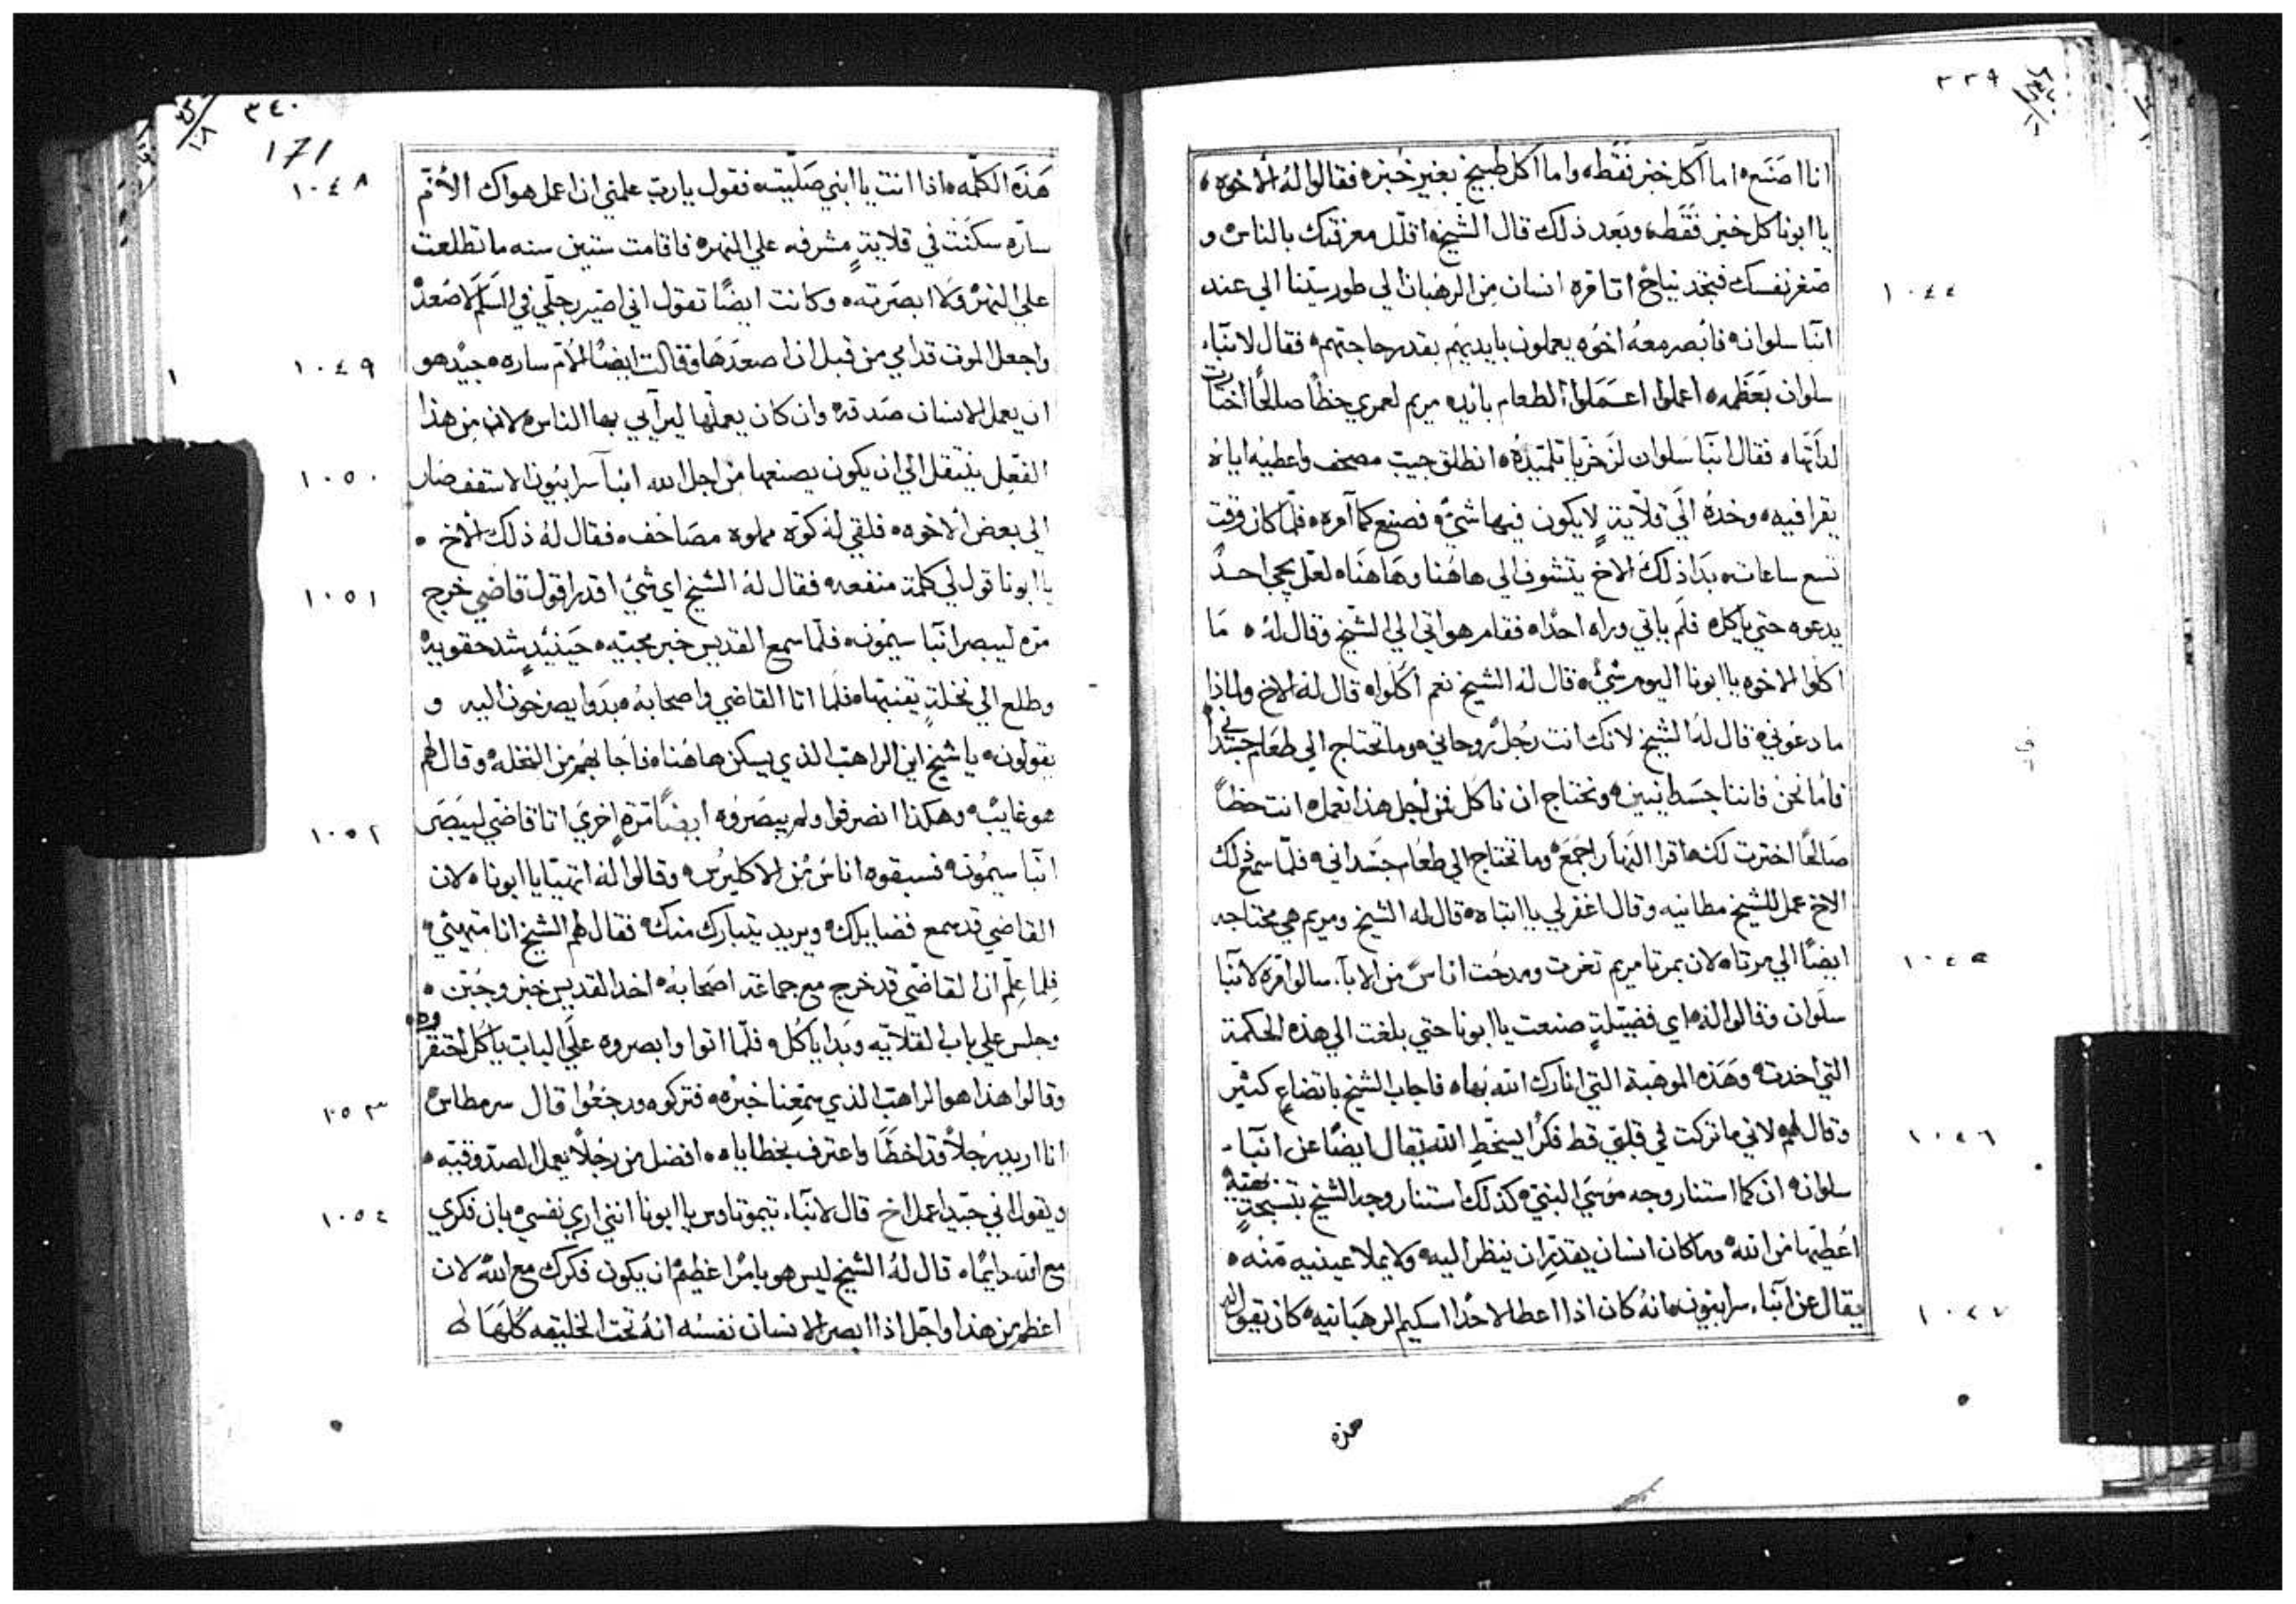 ٣٣٩
انا اصنع ه اما آكل خبز فقط ه واما آكل طبيخ بغير خبز ه فقالوا له الاخوه ه
يا ابونا كل خبز فقط ه وبعد ذلك قال الشيخ ه اقلل معرفتك بالناس و
صغر نفسك فتجد نياح اتا مره انسان من الرهبان الي طور سينا الي عند
١٠٤٤
انبا سلوان ه فابصر معه اخوه يعملون بايديهم بقدر حاجتهم ه فقال لانبا
سلوان بعظمه ه اعملوا اعملوا الطعام بايده مريم لعمري حظا صالحا اختارت
لداتها ه فقال انبا سلوان لزخريا تلميذه ه انطلق جيب مصحف واعطيه اياه
يقرا فيه ه وخده الي قلاية لا يكون فيها شي ه فصنع كما آمره ه فلما كان وقت
تسع ساعات ه بدا ذلك الاخ يتشوف الي هاهنا وهاهناه لعل يجي احد
يدعوه حتي ياكل ه فلم ياتي وراه احدا ه فقام هو اتي الي الشيخ وقال له ه ما
اكلوا الاخوه يا ابونا اليوم شي ه قال له الشيخ نعم اكلوا ه قال له الاخ ولماذا
ما دعوني ه قال له الشيخ لانك انت رجل روحاني ه وما تحتاج الي طعام جسداني
فاما نحن فاننا جسدانيين ه ونحتاج ان ناكل فمن اجل هذا نعمل ه انت حظا
صالحا اخترت لك ها قرا النهار اجمع ه وما تحتاج الي طعام جسداني ه فلما سمع ذلك
الاخ عمل للشيخ مطانيه وقال اغفر لي يا ابتاه ه قال له الشيخ ومريم هي محتاجه
ايضا الي مرتا ه لان بمرتا مريم تعرت ومدحت اناس من الابا ء سالوا مره لانبا
١٠٤٥
سلوان وقالوا له ه اي فضيلة صنعت يا ابونا حتي بلغت الي هذه الحكمة
التي اخدت ه وهذه الموهبة التي انارك الله بها ه فاجاب الشيخ باتضاع كثير
وقال لهم ه لاني ما تركت في قلبي قط فكرا يسخط الله يقال ايضا عن انبا
١٠٤٦
سلوان ه ان كما استنار وجه موسي النبي ه كذلك استنار وجه الشيخ بتسبحة
اعطيها من الله ه وما كان انسان يقدر ان ينظر اليه ه ولا يملا عينيه منه ه
يقال عن انبا ء سرابيون ه انه كان اذا اعطا لاحد اسكيم الرهبانيه ه كان يقول له
١٠٤٧
هذه
٣٤٠
171
هذه الكلمه ه اذا انت يا ابني صليت ه فقول يا رب علمني ان اعمل هواك الام
١٠٤٨
ساره سكنت في قلاية مشرفه علي النهر ه فاقامت ستين سنه ما تطلعت
علي النهر ولا ابصرته ه وكانت ايضا تقول اني اصير رجلي في السلم لاصعد
واجعل الموت قدامي من قبل ان اصعدها ه وقالت ايضا الام ساره ه جيد هو
١٠٤٩
ان يعمل الانسان صدقه وان كان يعملها ليرآيي بها الناس ه لانه من هذا
الفعل ينتقل الي ان يكون يصنعها من اجل الله انبا سرابيون الاسقف صار
١٠٥٠
الي بعض الاخوه ه فلقي له كوه مملوه مصاحف ه فقال له ذلك الاخ ه
يا ابونا قول لي كلمة منفعه ه فقال له الشيخ اي شي اقدر اقول قاضي خرج
١٠٥١
مره ليبصر انبا سيمون ه فلما سمع القديس خبر مجيه ه حينيد شد حقويه
وطلع الي نخلة ينقيها ه فلما اتا القاضي واصحابه ه بدوا يصرخون اليه و
يقولون ه يا شيخ اين الراهب الذي يسكن هاهنا ه فاجابهم من النخله ه وقال لهم
هو غايب ه وهكذا انصرفوا ولم يبصروه ايضا مرة اخري اتا قاضي ليبصر
١٠٥٢
انبا سيمون ه فسبقوه اناس من الاكليرس ه وقالوا له اتهيا يا ابونا ه لان
القاضي قد سمع فضايلك ه ويريد يتبارك منك ه فقال لهم الشيخ انا متهيئ ه
فلما علم ان القاضي قد خرج مع جماعة اصحابه ه اخد القديس خبز وجبن ه
وجلس علي باب القلايه وبدا ياكل ه فلما اتوا وابصروه علي الباب ياكل احتقروه ه
وقالوا هذا هو الراهب الذي سمعنا خبره ه فتركوه ورجعوا قال سرمطاس
١٠٥٣
انا اريد رجلا قد اخطا واعترف بخطاياه ه افضل من رجلا يعمل الصدوقيه ه
ويقول اني جيد اعمل اخ قال لانبا ء تيموتاوس يا ابونا انني اري نفسي ه بان فكري
١٠٥٤
مع الله دايما ه قال له الشيخ ليس هو بامر عظيم ان يكون فكرك مع الله لان
اعظم من هذا واجل اذا ابصر الانسان نفسه انه تحت الخليقه كلها